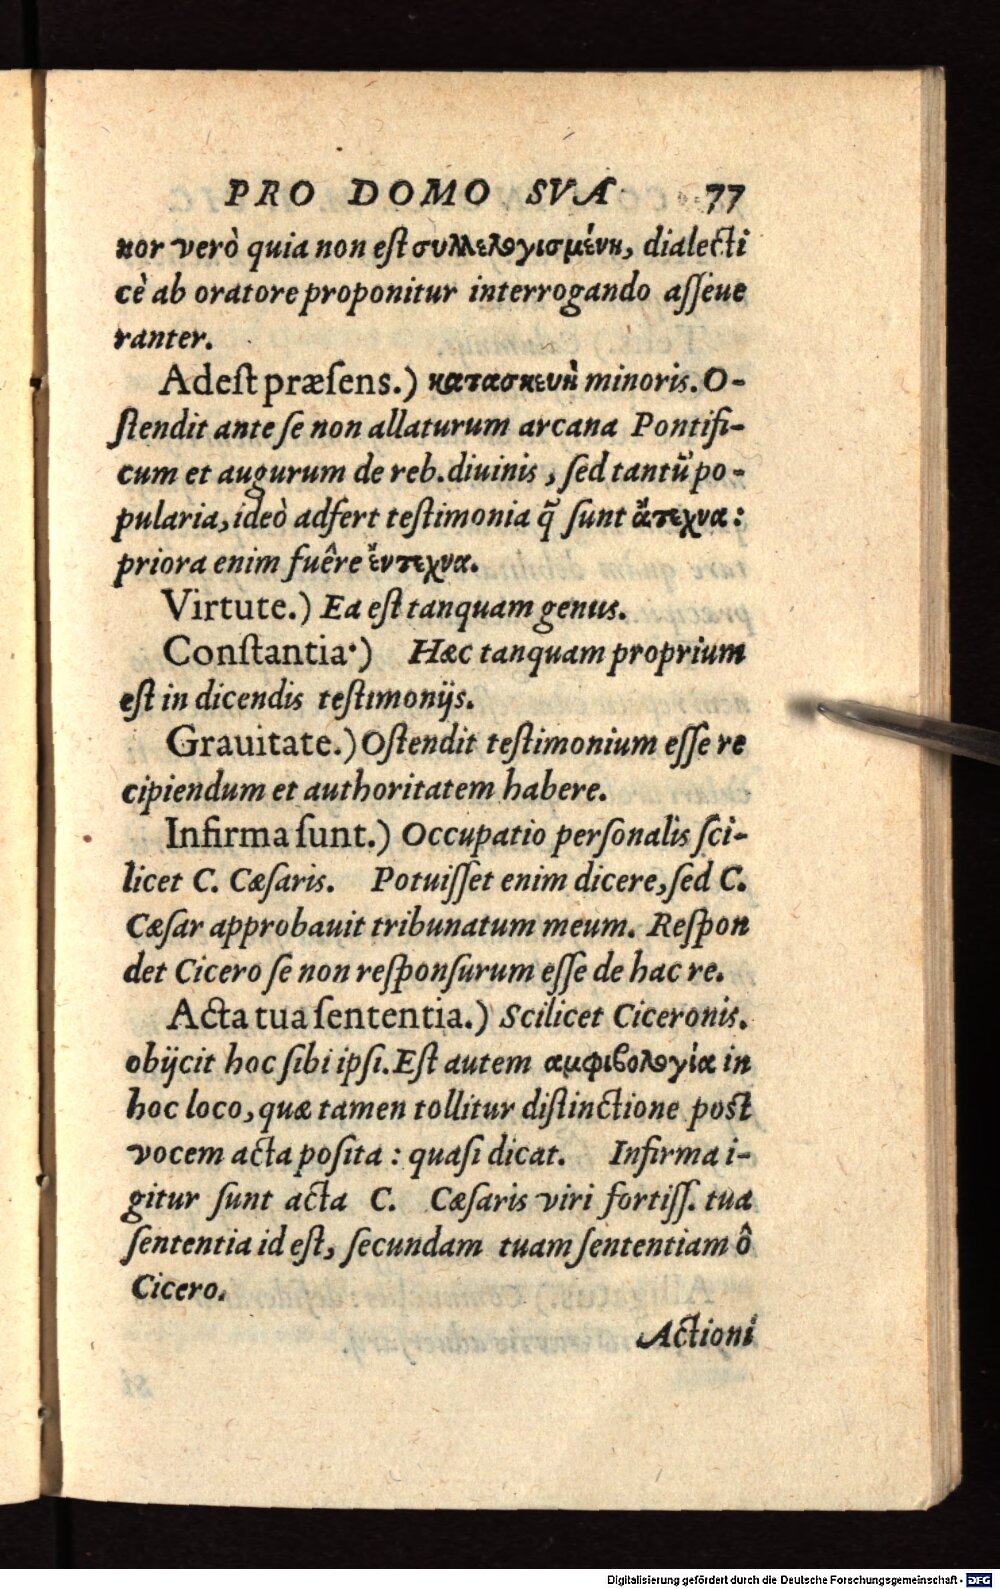 PRO DOMO SVA 77
nor verò quia non est συλλελογισμένη, dialecti
cè ab oratore proponitur interrogando asseue
ranter.
Adest præsens.) κατασκευὴ minoris. O-
stendit ante se non allaturum arcana Pontifi-
cum et augurum de reb. diuinis, sed tantũ po-
pularia, ideò adfert testimonia q̃ sunt ἄτεχνα:
priora enim fuêre ἔντεχνα.
Virtute.) Ea est tanquam genus.
Constantia·) Hæc tanquam proprium
est in dicendis testimonijs.
Grauitate.) Ostendit testimonium esse re
cipiendum et authoritatem habere.
Infirma sunt.) Occupatio personalis sci-
licet C. Cæsaris. Potuisset enim dicere, sed C.
Cæsar approbauit tribunatum meum. Respon
det Cicero se non responsurum esse de hac re.
Acta tua sententia.) Scilicet Ciceronis.
obijcit hoc sibi ipsi. Est autem αμφιβολογία in
hoc loco, quæ tamen tollitur distinctione post
vocem acta posita : quasi dicat. Infirma i-
gitur sunt acta C. Cæsaris viri fortiss. tua
sententia id est, secundam tuam sententiam ô
Cicero.
Actioni
Digitalisierung gefördert durch die Deutsche Forschungsgemeinschaft - DFG